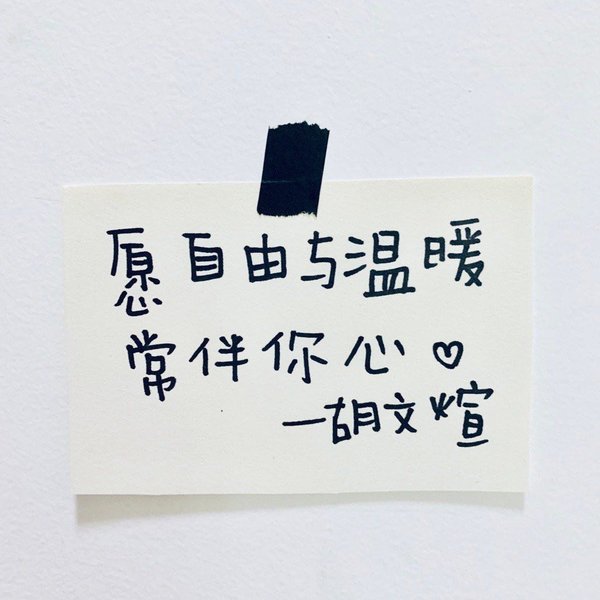 愿自由与温暖
常伴你心♡
—胡文煊